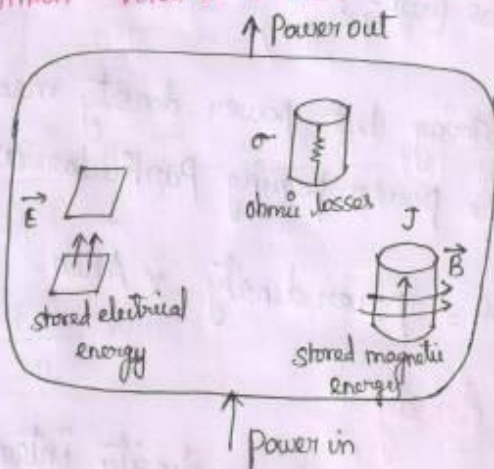 Power out
σ
ohmic losses
E
J
B
stored electrical
energy
stored magnetic
energy
Power in